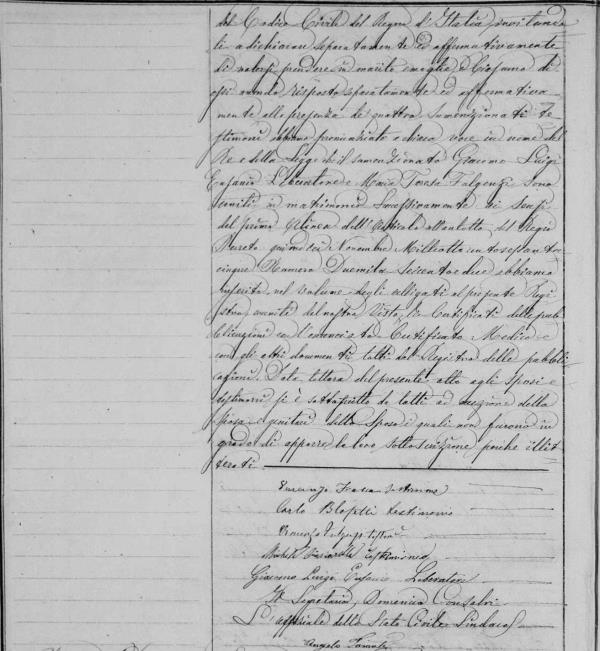 del Codice Civile del Regno d'Italia, invitando
li a dichiarare separatamente ed affermativamente
di volersi prendere in marito e moglie, e ciascuno di
essi avendo risposto separatamente ed affermativa-
mente alla presenza de' quattro summenzionati te-
stimoni abbiamo pronunciato a chiara voce in nome del
Re e della Legge che il summenzionato Giacomo Luigi
Eufanio Liberatore e Maria Teresa Fulgenzi sono
uniti in matrimonio Successivamente ai sensi
del primo Alinea dell'Articolo ottantotto del Regio
Decreto quindici Novembre Milleottocentosessanta
cinque Numero Duemila Seicentodue abbiamo
inserito, nel volume degli allegati al presente Regi
stro, muniti del nostro Visto, li Certificati delle pub
blicazioni con l'enunciato Certificato Medico e
con gli altri documenti tutti del Registro delle pubbli
cazioni. Data lettura del presente atto agli Sposi e
testimoni si è sottoscritto da tutti ad eccezione della
sposa e genitori dello Sposo i quali non furono in
grado di apporre la loro sottoscrizione perché illet
terati
Testimone
Carlo testimonio
Fulgenzi
Michele Testimonio
Giacomo Luigi Eufanio Liberatore
Il Segretario, Domenico Consalvi
L'uffiziale dello Stato Civile Sindaco
Angelo